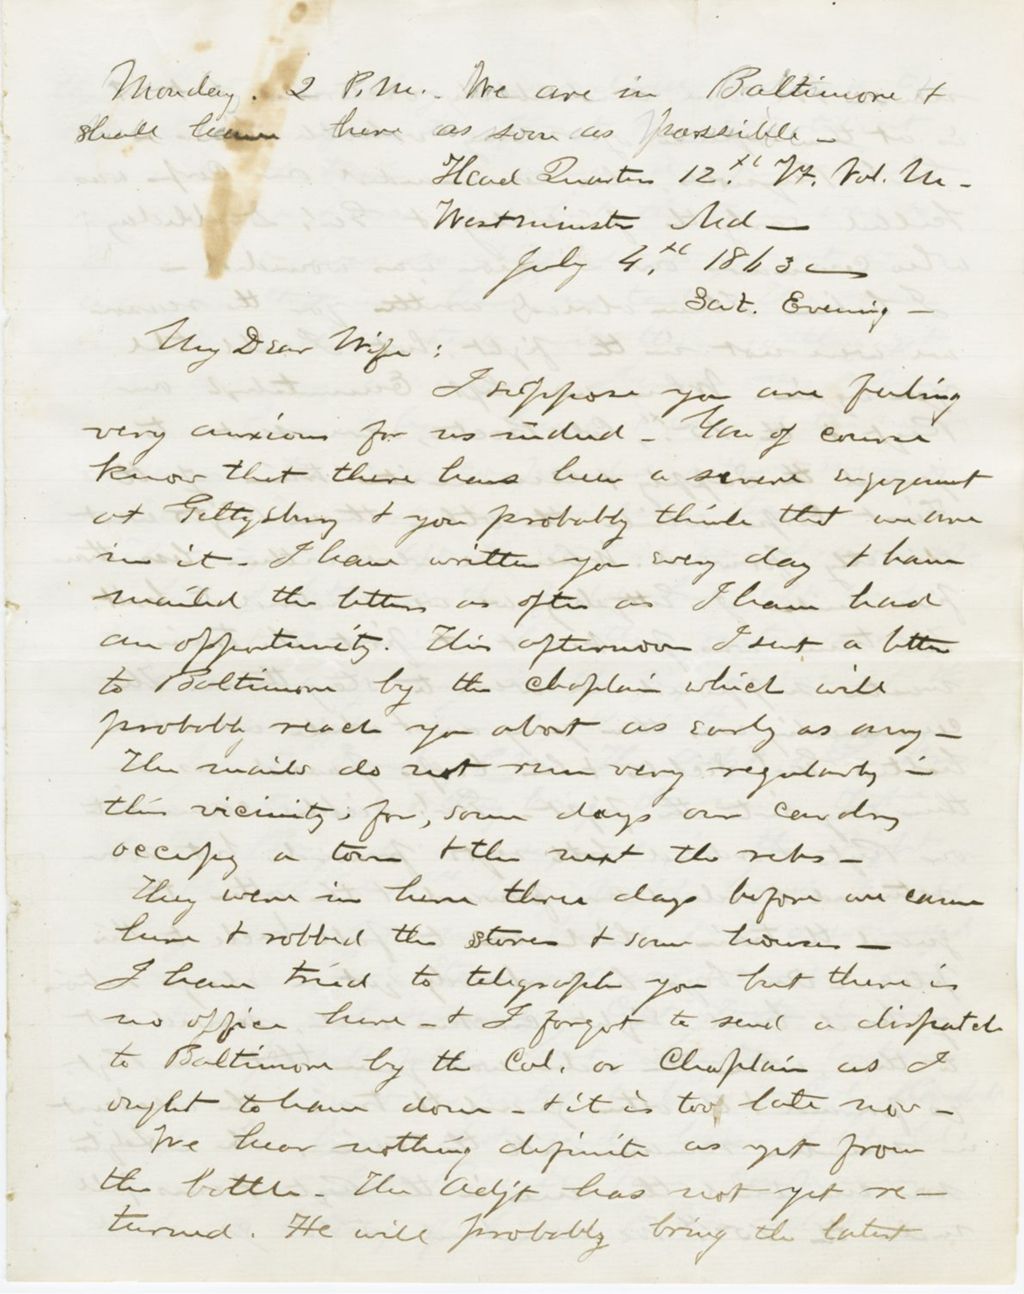 Monday. 2 P.M. - We are in Baltimore +
shall leave here as soon as possible -
Head Quarters 12.th Vt. Vol. M -
Westminster Md -
July 4.th 1863
Sat. Evening -
My Dear Wife :
I suppose you are feeling
very anxious for us indeed - You of course
know that there has been a severe engagement
at Gettysburg + you probably think that we are
in it - I have written you every day + have
mailed the letters as often as I have had
an opportunity. This afternoon I sent a letter
to Baltimore by the Chaplain which will
probably reach you about as early as any -
The mails do not run very regularly in
this vicinity; for, some days our cavalry
occupy a town + the next the rebs -
They were in here three days before we came
here + robbed the stores + some houses -
I have tried to telegraph you but there is
no office here - + I forgot to send a dispatch
to Baltimore by the Col. or Chaplain as I
ought to have done - + it is too late now -
We hear nothing definite as yet from
the battle - The Adjt has not yet re -
turned. He will probably bring the latest